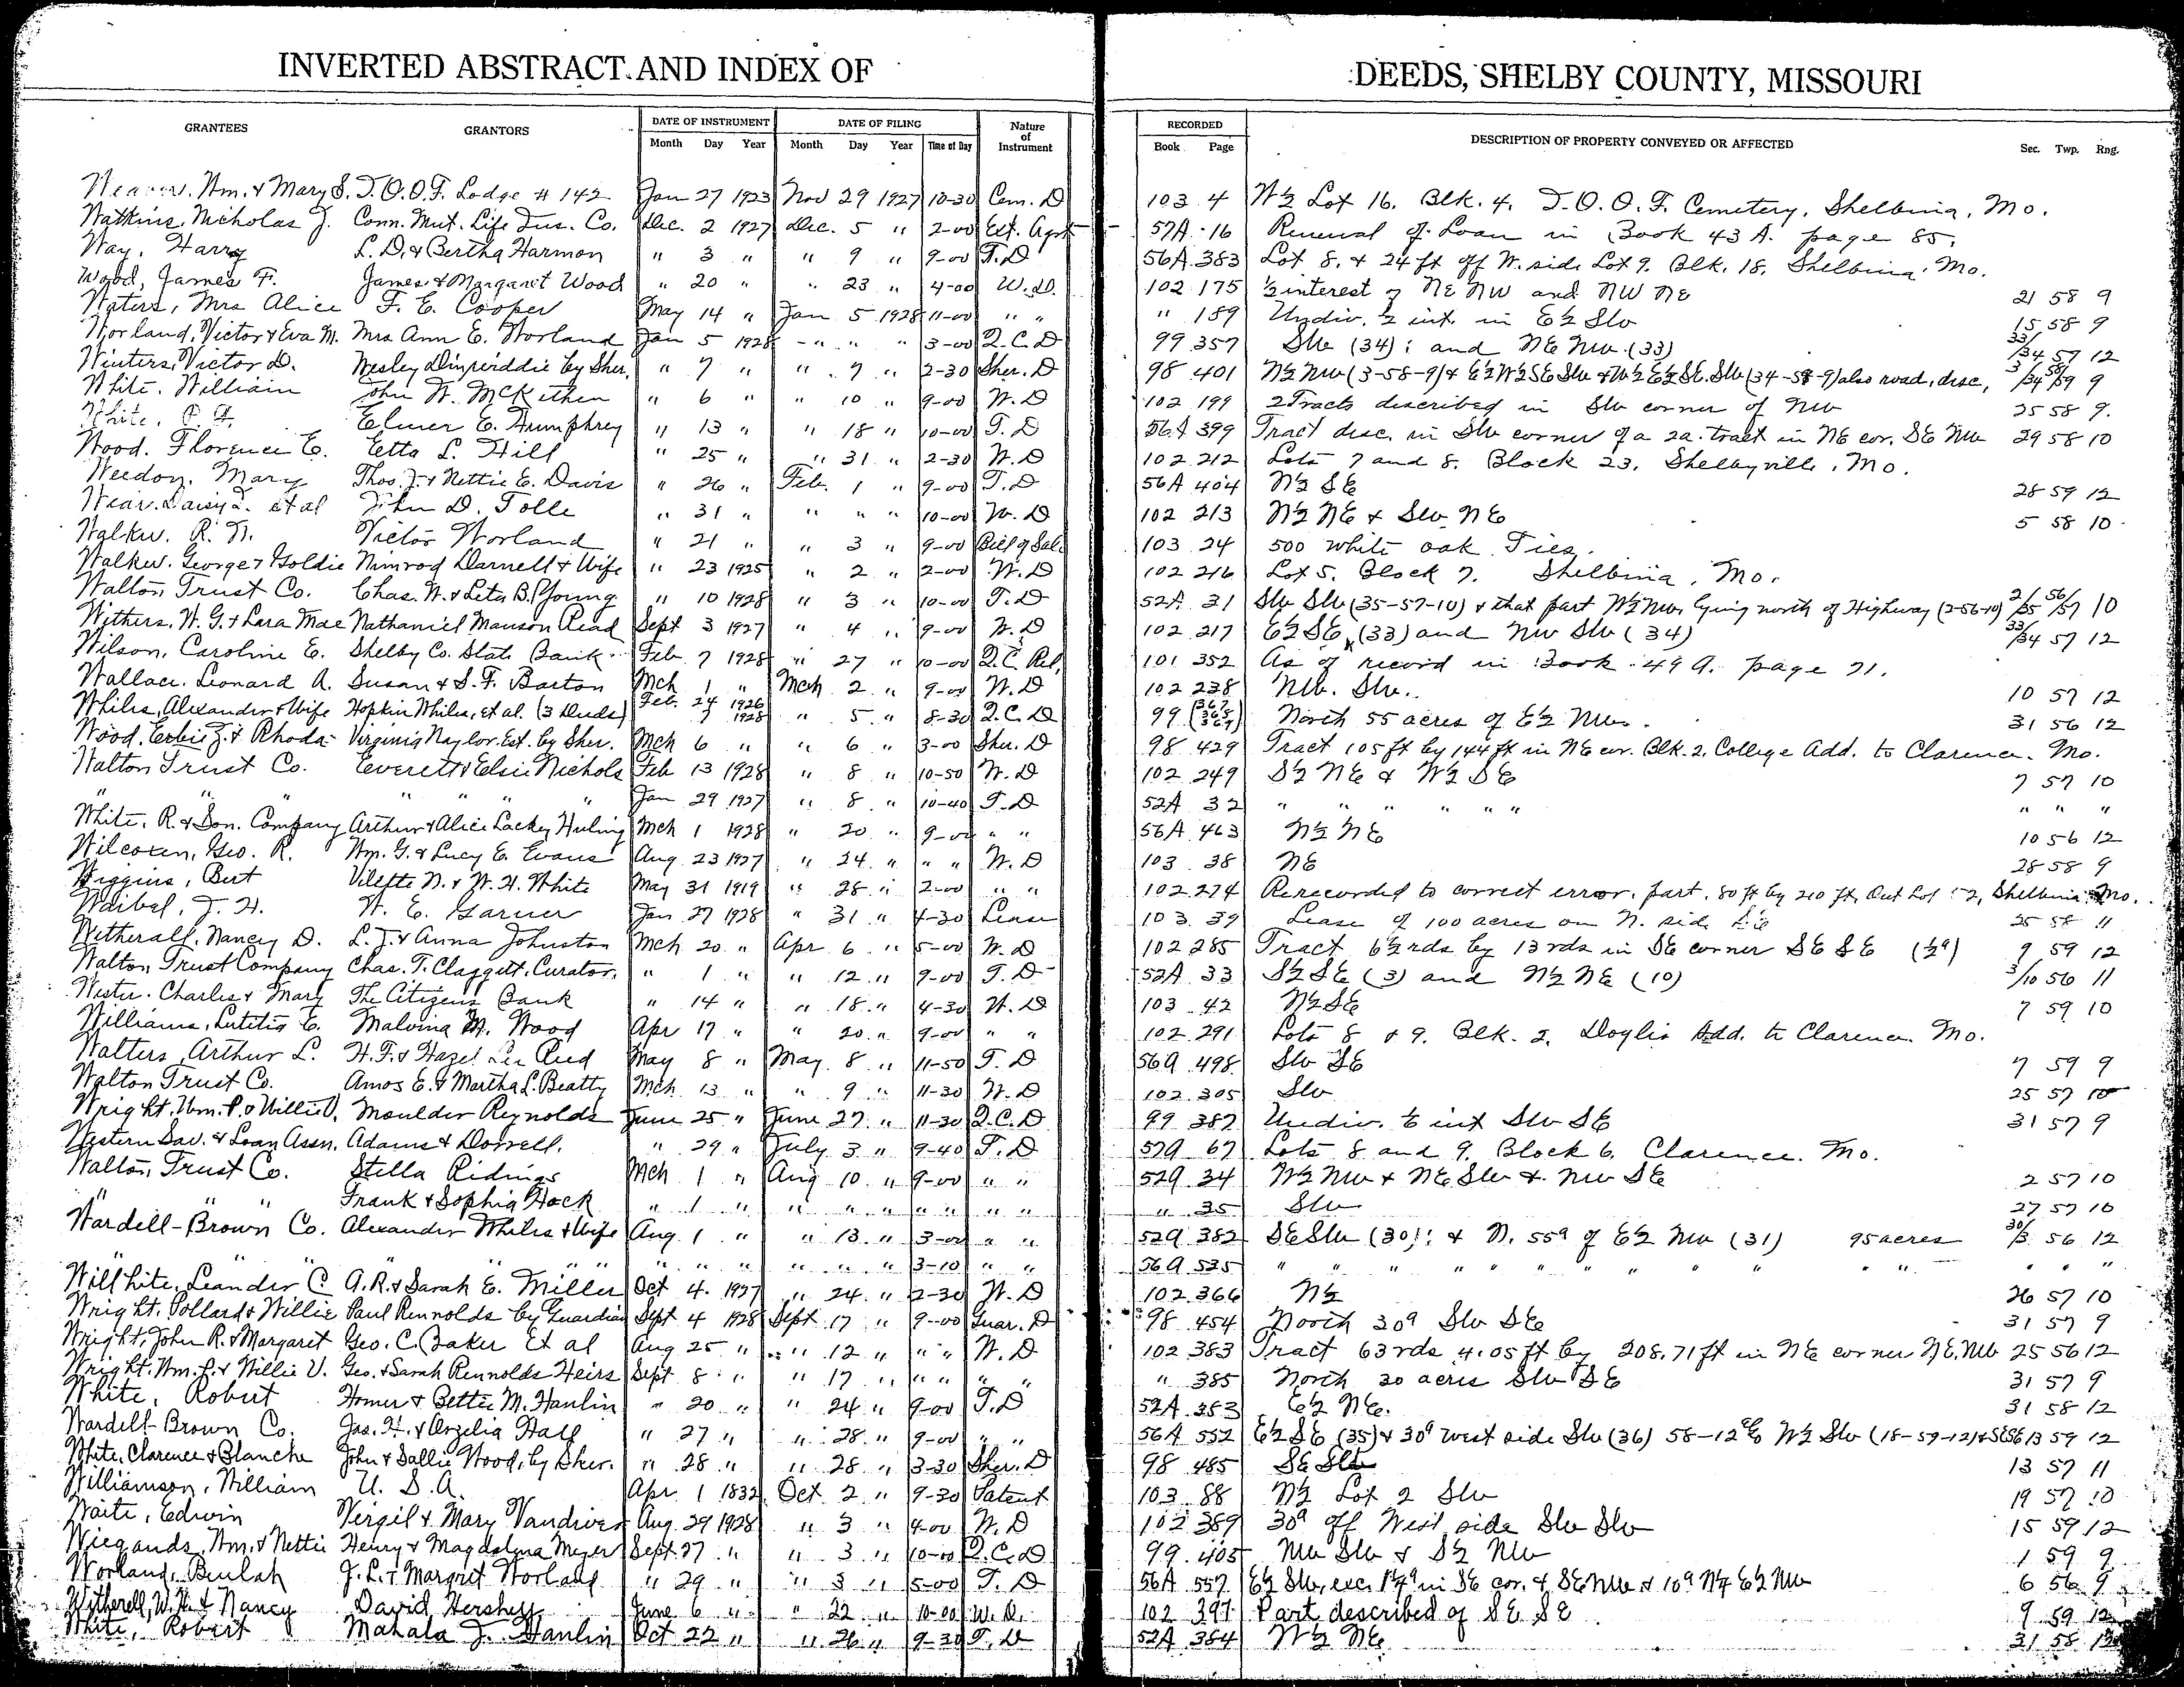 INVERTED ABSTRACT AND INDEX OF DEEDS, SHELBY COUNTY, MISSOURI
GRANTEES GRANTORS DATE OF INSTRUMENT DATE OF FILING Nature of Instrument RECORDED DESCRIPTION OF PROPERTY CONVEYED OR AFFECTED Sec. Twp. Rng.
Month Day Year Month Day Year Time of Day Book Page
Wm. & Mary S. I.O.O.F. Lodge # 142 Jan 27 1923 Nov 29 1927 10-30 Cem. D 103 4 W½ Lot 16. Blk. 4. I.O.O.F. Cemetery, Shelbina, Mo.
Watkins, Nicholas J. Conn. Mut. Life Ins. Co. Dec. 2 1927 Dec. 5 " 2-00 Ext. Agrt 57A 16 Renewal of Loan in Book 43 A. page 85.
Way, Harry L.D. & Bertha Harmon " 3 " " 9 " 9-00 T.D 56A 383 Lot 8. & 24 ft off W. side Lot 9. Blk. 18. Shelbina, Mo.
Wood, James F. James & Margaret Wood " 20 " " 23 " 4-00 W.D. 102 175 ½ interest of NE NW and NW NE 21 58 9
Waters, Mrs Alice F. E. Cooper May 14 " Jan 5 1928 11-00 " " " 189 Undiv. ½ int. in E½ SW 15 58 9
Worland, Victor & Eva M. Mrs Ann E. Worland Jan 5 1928 " " " 3-00 Q.C.D 99 357 SW (34); and NE NW (33) 33/34 57 12
Winters, Victor D. Wesley by Sher. " 7 " " 7 " 2-30 Sher. D 98 401 N½ NW (3-58-9) & E½ W½ SE SW & W½ E½ SE SW (34-59-9) also road, desc, 3/34 58/59 9
White, William John W. McKethen " 6 " " 10 " 9-00 W.D 102 199 2 Tracts described in SW corner of NW 25 58 9
White, Elmer E. Humphrey " 13 " " 18 " 10-00 T.D 56A 399 Tract desc. in SW corner of a 2a. tract in NE cor. SE NW 29 58 10
Wood, Florence E. Etta L. Hill " 25 " " 31 " 2-30 W.D 102 212 Lots 7 and 8. Block 23. Shelbyville, Mo.
Weedon, Mary Thos. J. & Nettie E. Davis " 26 " Feb. 1 " 9-00 T.D 56A 404 N½ SE 28 59 12
Wear, Daisy et al John D. Tolle " 31 " " " " 10-00 W.D 102 213 N½ NE & SW NE 5 58 10
Walker, R. N. Victor Worland " 21 " " 3 " 9-00 Bill of Sale 103 24 500 white oak Ties.
Walker, George & Goldie Nimrod Darnell & Wife " 23 1925 " 2 " 2-00 W.D 102 216 Lot 5. Block 7. Shelbina, Mo.
Walton Trust Co. Chas. W. & Leta B. Young " 10 1928 " 3 " 10-00 T.D 52A 31 SW SW (35-57-10) & that part W½ NW, lying north of Highway (2-56-10) 2/35 56/57 10
Withers, W. G. & Lara Mae Nathaniel Manson Read Sept 3 1927 " 4 " 9-00 W.D 102 217 E½ SE (33) and NW SW (34) 33/34 57 12
Wilson, Caroline E. Shelby Co. State Bank Feb 7 1928 " 27 " 10-00 Q.C. Rel. 101 352 As of record in Book 49 A. page 21.
Wallace, Leonard A. Susan & S. F. Barton Mch 1 " Mch 2 " 9-00 W.D 102 238 NW. SW. 10 57 12
Whiles, Alexander & Wife Hopkin Whiles, et al. (3 Deeds) Feb. 24 1926 7 1928 " 5 " 8-30 Q.C.D 99 (367 368 369) North 55 acres of E½ NW. 31 56 12
Wood, Erbie J. & Rhoda Virginia Naylor Est. by Sher. Mch 6 " " 6 " 3-00 Sher. D 98 429 Tract 105 ft by 144 ft in NE cor. Blk. 2. College Add. to Clarence. Mo.
Walton Trust Co. Everett & Elsie Nichols Feb 13 1928 " 8 " 10-50 W.D 102 249 S½ NE & W½ SE 7 57 10
" " " " " " " Jan 29 1927 " 8 " 10-40 T.D 52A 32 " " " " " " " "
White, R. & Son. Company Arthur & Alice Lackey Huling Mch 1 1928 " 20 " 9-00 " " 56A 463 N½ NE 10 56 12
Wilcoxen, Geo. R. Wm. G. & Lucy E. Evans Aug 23 1927 " 24 " " " W.D 103 38 NE 28 58 9
Wiggins, Bert N. & W. H. White May 31 1919 " 28 " 2-00 " " 102 274 Rerecorded to correct error. part. 80 ft by 210 ft. Out Lot 2, Shelbina, Mo.
Waibel, J. H. W. E. Garner Jan 27 1928 " 31 " 4-30 Lease 103 39 Lease of 100 acres on N. side 25 58 11
Witherall, Nancy D. L. J. & Anna Johnston Mch 20 " Apr 6 " 5-00 W.D 102 285 Tract 6½ rds by 13 rds in SE corner SE SE (½a) 9 59 12
Walton Trust Company Chas. T. Claggett, Curator. " 1 " " 12 " 9-00 T.D 52A 33 S½ SE (3) and N½ NE (10) 3/10 56 11
Wester, Charles & Mary The Citizens Bank " 14 " " 18 " 4-30 W.D 103 42 N½ SE 7 59 10
Williams, Lutitia E. Malvina M. Wood Apr 17 " " 20 " 9-00 " " 102 291 Lots 8 & 9. Blk. 2. Doyles Add. to Clarence. Mo.
Walters, Arthur L. H. F. & Hazel Lee Reed May 8 " May 8 " 11-50 T.D 56A 498 SW SE 7 59 9
Walton Trust Co. Amos E. & Martha L. Beatty Mch 13 " " 9 " 11-30 W.D 102 305 SW 25 57 10
Wright, Wm. P. & Willie V. Moulder Reynolds June 25 " June 27 " 11-30 Q.C.D 99 387 Undiv. 1/6 int SW SE 31 57 9
Western Sav. & Loan Assn. Adams & Dorrell. " 29 " July 3 " 9-40 T.D 57A 67 Lots 8 and 9. Block 6. Clarence. Mo.
Walton Trust Co. Stella Ridings Mch 1 " Aug 10 " 9-00 " " 52A 34 W½ NW & NE SW & NW SE 2 57 10
" " " Frank & Sophia Hock " 1 " " " " " " " " " 35 SW 27 57 10
Wardell-Brown Co. Alexander Whiles & Wife Aug 1 " " 13 " 3-00 " " 52A 382 SE SW (30); & N. 55a of E½ NW (31) 95 acres 30/3 56 12
" " " " " " " " " " " " 3-10 " " 56A 535 " " " " " " " " " " " " "
Willhite, Leander C. A.R. & Sarah E. Miller Oct 4 1927 " 24 " 2-30 W.D 102 366 N½ 26 57 10
Wright, Pollard & Willie Paul Reynolds by Guardian Sept 4 1928 Sept 17 " 9-00 Guar. D 98 454 North 30a SW SE 31 57 9
Wright, John R. & Margaret Geo. C. Baker Et al Aug 25 " " 12 " " " W.D 102 383 Tract 63 rds 4.05 ft by 208.71 ft in NE corner NE. NW 25 56 12
Wright, Wm. P. & Willie V. Geo. & Sarah Reynolds Heirs Sept 8 " " 17 " " " " " " 385 North 30 acres SW SE 31 57 9
White, Robert Homer & Bettie M. Hanlin " 20 " " 24 " 9-00 T.D 52A 383 E½ NE. 31 58 12
Wardell-Brown Co. Jas. H. & Arzelia Hall " 27 " " 28 " 9-00 " " 56A 552 E½ SE (35) & 30a west side SW (36) 58-12 & W½ SW (18-59-12) 59 12
White, Clarence & Blanche John & Sallie Wood, by Sher. " 28 " " 28 " 3-30 Sher. D 98 485 SE SW 13 57 11
Williamson, William U. S. A. Apr 1 1832 Oct 2 " 9-30 Patent 103 88 N½ Lot 2 SW 19 57 10
Waite, Edwin Virgil & Mary Vandiver Aug 29 1928 " 3 " 4-00 W.D 102 389 30a off West side SW SW 15 59 12
Wiegands, Wm. & Nettie Henry & Magdalena Meyer Sept 27 " " 3 " 10-00 Q.C.D 99 405 NW SW & S½ NW 1 59 9
Worland, Beulah J. L. & Margret Worland " 29 " " 3 " 5-00 T.D 56A 557 E½ SW, exc. in SE cor. & SE NW & 10a E½ NW 6 56 9
Witherell, W. H. & Nancy David Hershey June 6 " " 22 " 10-00 W.D. 102 397 Part described of SE SE 9 59 12
White, Robert Mahala J. Hanlin Oct 22 " " 26 " 9-30 T.D 52A 384 W½ NE 31 58 12